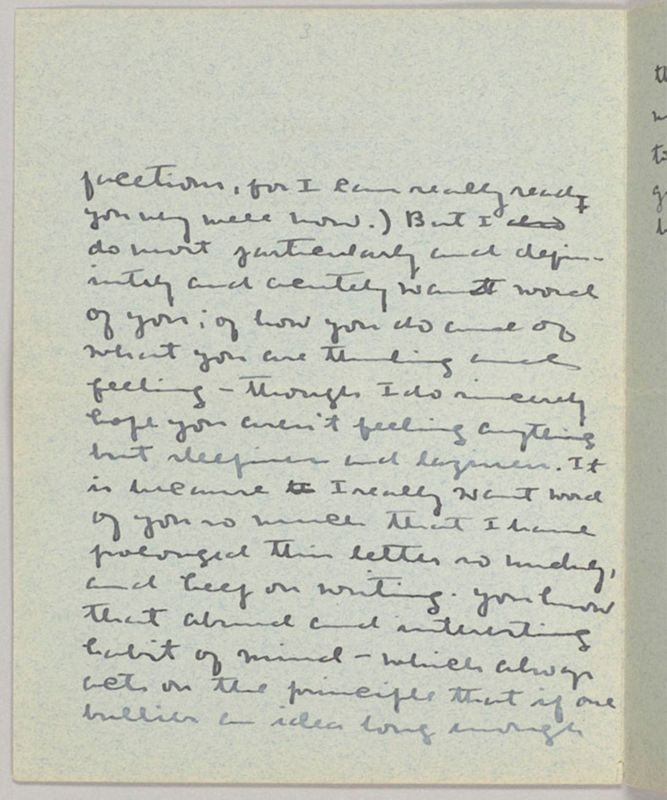 3
for I can really read
you very well now.) But I
do most particularly and defin-
itely and acutely want word
of you; of how you do and of
what you are thinking and
feeling – though I do sincerely
hope you aren't feeling anything
but sleepiness and laziness. It
is because I really want word
of you so much that I have
prolonged this letter so unduly,
and keep on writing. You know
that absurd and interesting
habit of mind – which always
acts on the principle that if one
bullies an idea long enough